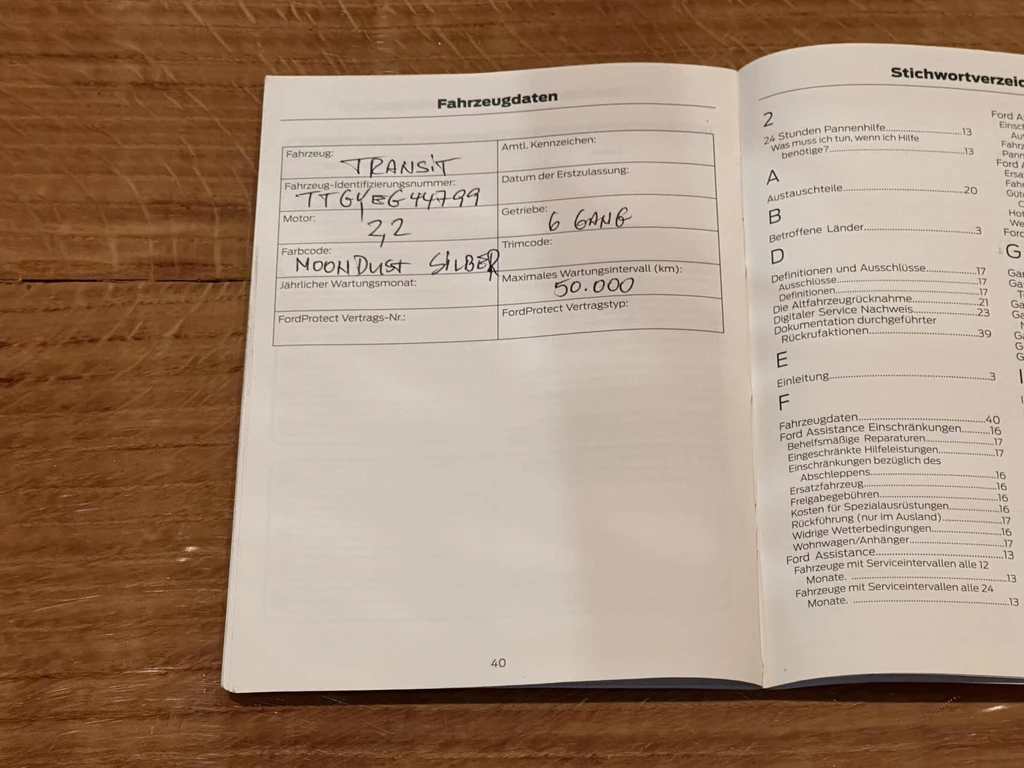 Fahrzeugdaten
Fahrzeug: TRANSIT
Amtl. Kennzeichen:
Fahrzeug-Identifizierungsnummer: TTGYEG44799
Datum der Erstzulassung:
Motor: 2,2
Getriebe: 6 GANG
Farbcode: MOONDUST SILBER
Trimcode:
Jährlicher Wartungsmonat:
Maximales Wartungsintervall (km): 50.000
FordProtect Vertrags-Nr.:
FordProtect Vertragstyp:
40
2
24 Stunden Pannenhilfe....................13
Was muss ich tun, wenn ich Hilfe
benötige?....................13
A
Austauschteile....................20
B
Betroffene Länder....................3
D
Definitionen und Ausschlüsse....................17
Ausschlüsse....................17
Definitionen....................17
Die Altfahrzeugrücknahme....................21
Digitaler Service Nachweis....................23
Dokumentation durchgeführter
Rückrufaktionen....................39
E
Einleitung....................3
F
Fahrzeugdaten....................40
Ford Assistance Einschränkungen..........16
Behelfsmäßige Reparaturen....................17
Eingeschränkte Hilfeleistungen....................17
Einschränkungen bezüglich des
Abschleppens....................16
Ersatzfahrzeug....................16
Freigabegebühren....................16
Kosten für Spezialausrüstungen..........16
Rückführung (nur im Ausland)....................17
Widrige Wetterbedingungen....................16
Wohnwagen/Anhänger....................17
Ford Assistance....................13
Fahrzeuge mit Serviceintervallen alle 12
Monate. ....................13
Fahrzeuge mit Serviceintervallen alle 24
Monate. ....................13
G